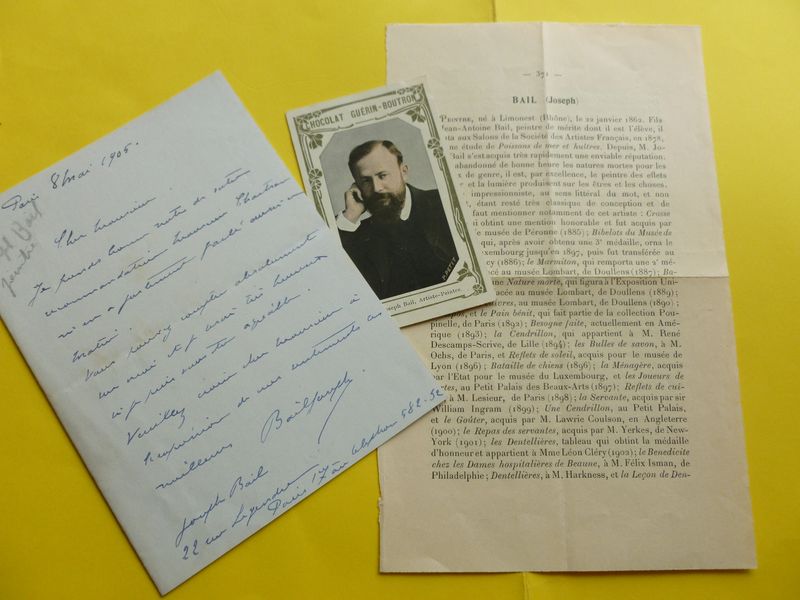 Paris 8 mai 1905.
Bail
peintre
Cher Monsieur,
Je prends bonne note de votre
recommandation Monsieur Chartran
m'en a justement parlé aussi ce
matin.
Vous pouvez compter absolument
sur moi et je serai très heureux
si je puis vous être agréable.
Veuillez croire cher Monsieur à
l'expression de mes sentiments les
meilleurs
Bail Joseph
Joseph Bail
22 rue Legendre
Paris 17e téléphone 582-52
CHOCOLAT GUÉRIN-BOUTRON
PETIT
Joseph Bail, Artiste-Peintre.
— 371 —
BAIL (Joseph)
PEINTRE, né à Limonest (Rhône), le 22 janvier 1862. Fils
Jean-Antoine Bail, peintre de mérite dont il est l'élève, il
ta aux Salons de la Société des Artistes Français, en 1878,
ne étude de Poissons de mer et huîtres. Depuis, M. Jo-
Bail s'est acquis très rapidement une enviable réputation.
abandonné de bonne heure les natures mortes pour les
de genre, il est, par excellence, le peintre des effets
et la lumière produisent sur les êtres et les choses.
impressionniste, au sens littéral du mot, et non
, étant resté très classique de conception et de
faut mentionner notamment de cet artiste : Crosse
i obtint une mention honorable et fut acquis par
musée de Péronne (1885); Bibelots du Musée de
qui, après avoir obtenu une 3e médaille, orna le
uxembourg jusqu'en 1897, puis fut transférée au
cy (1886); le Marmiton, qui remporta une 2e mé-
acé au musée Lombart, de Doullens (1887); Ba-
une Nature morte, qui figura à l'Exposition Uni-
acée au musée Lombart, de Doullens (1889);
ières, au musée Lombart, de Doullens (1890);
os, et le Pain bénit, qui fait partie de la collection Pou-
pinelle, de Paris (1892); Besogne faite, actuellement en Amé-
rique (1893); la Cendrillon, qui appartient à M. René
Descamps-Scrive, de Lille (1894); les Bulles de savon, à M.
Oehs, de Paris, et Reflets de soleil, acquis pour le musée de
Lyon (1896); Bataille de chiens (1896); la Ménagère, acquis
par l'Etat pour le musée du Luxembourg, et les Joueurs de
rtes, au Petit Palais des Beaux-Arts (1897); Reflets de cui-
, à M. Lesieur, de Paris (1898); la Servante, acquis par sir
William Ingram (1899); Une Cendrillon, au Petit Palais,
et le Goûter, acquis par M. Lawrie Coulson, en Angleterre
(1900); le Repas des servantes, acquis par M. Yerkes, de New-
York (1901); les Dentellières, tableau qui obtint la médaille
d'honneur et appartient à Mme Léon Cléry (1902); le Benedicite
chez les Dames hospitalières de Beaune, à M. Félix Isman, de
Philadelphie; Dentellières, à M. Harkness, et la Leçon de Den-